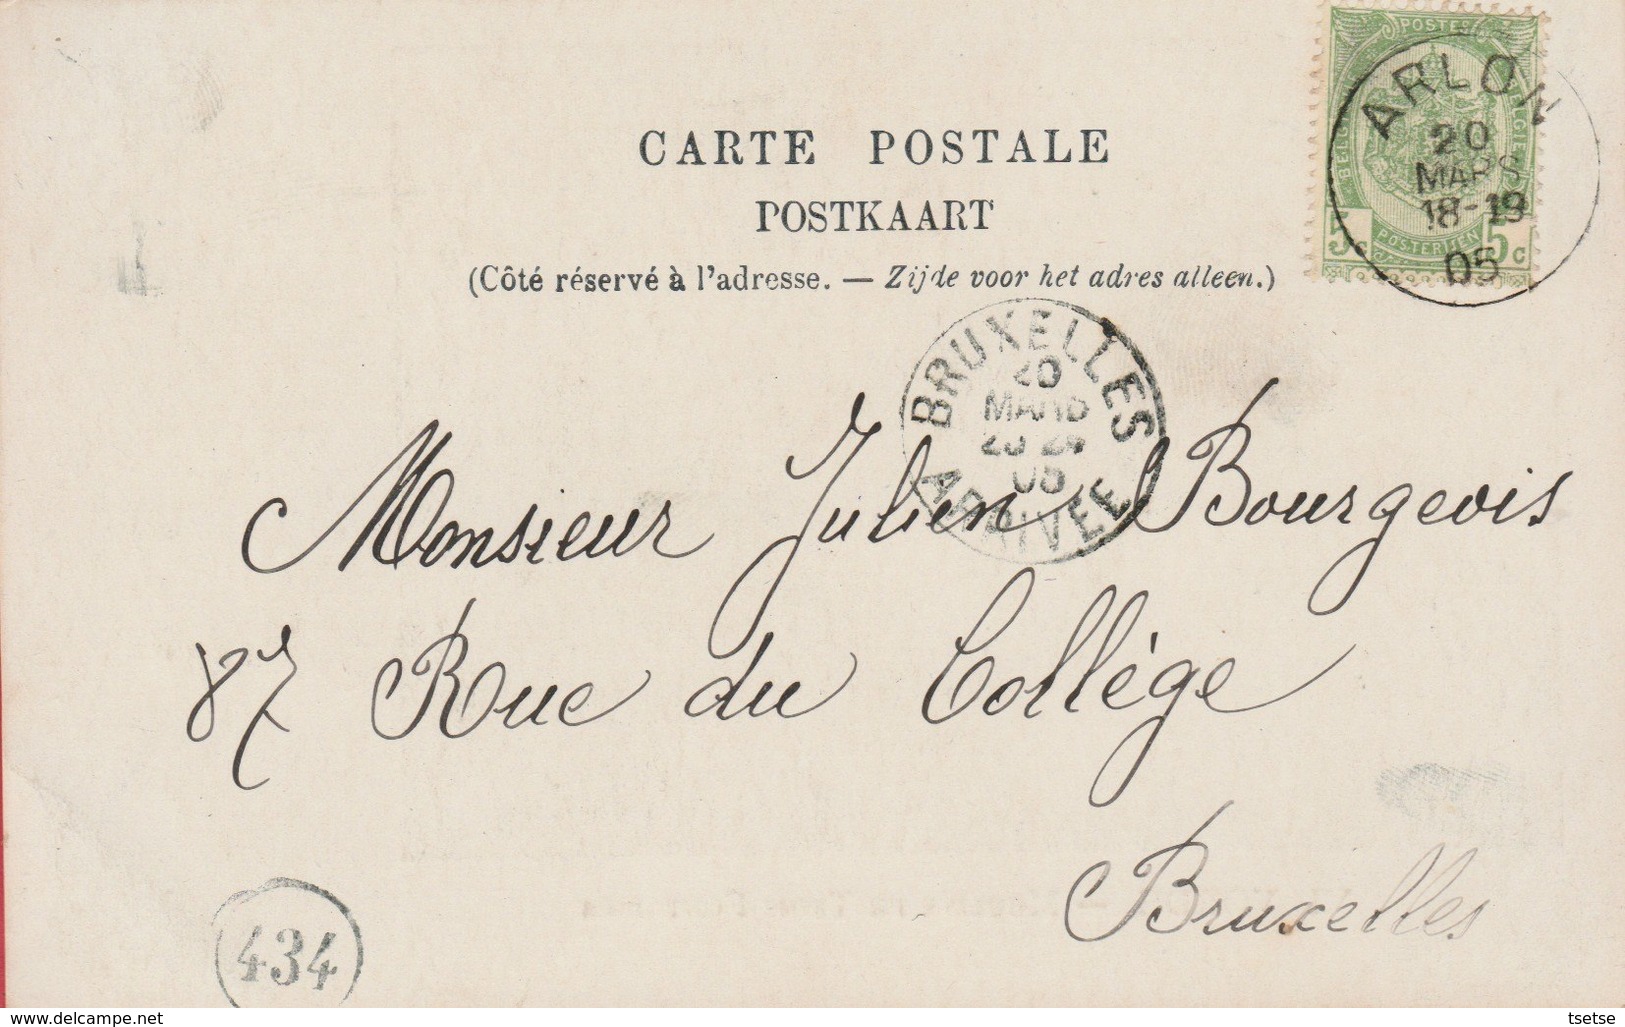 POSTES
BELGIQUE
BELGIË
POSTERIJEN
5c 5c
ARLON
20
MARS
18-19
05
CARTE POSTALE
POSTKAART
(Côté réservé à l'adresse. — Zijde voor het adres alleen.)
BRUXELLES
20
MARS
23-24
05
ARRIVEE
Monsieur Julien Bourgeois
87 Rue du Collège
Bruxelles
434
www.delcampe.net
tsetse